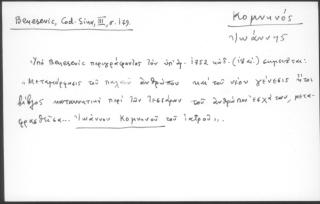 Benesevic, Cod. Sin., III, σ. 169.
Κομνηνός
Ἰωάννης
Ὑπὸ Benesevic περιγράφοντος τὸν ὑπ' ἀρ. 1752 κώδ. (18 αἰ.) σημειοῦται:
"Μεταμόρφωσις τοῦ παλαιοῦ ἀνθρώπου καὶ τοῦ νέου γέννεσις ἤτοι
βίβλος κατανυκτικὴ περὶ τῶν τεσσάρων τοῦ ἀνθρώπου ἐσχάτων, μετα-
φρασθεῖσα... Ἰωάννου Κομνηνοῦ τοῦ ἰατροῦ".